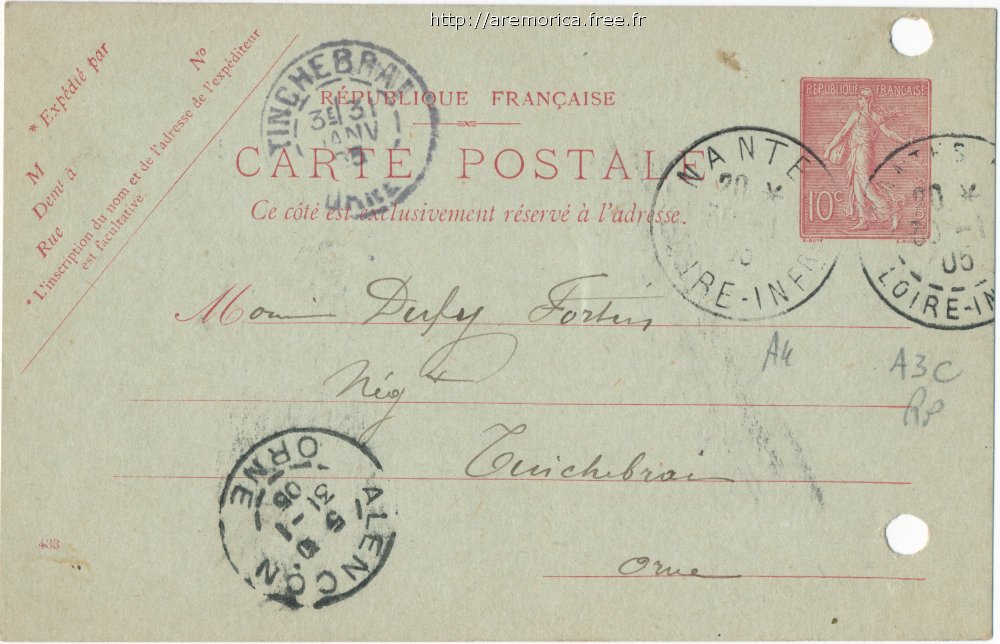 http://aremorica.free.fr
* Expédié par
N°
M
Demt à
Rue
* L'inscription du nom et de l'adresse de l'expéditeur
est facultative.
TINCHEBRAI
3E 31
JANV
05
ORNE
RÉPUBLIQUE FRANÇAISE
CARTE POSTALE
Ce côté est exclusivement réservé à l'adresse.
RÉPUBLIQUE FRANÇAISE
10c
POSTES
NANTES
20 *
30 -1
05
LOIRE-INFRE
NANTES
20 *
30 -1
05
LOIRE-IN
Monsieur Fortin
Négt
Tinchebrai
Orne
A4
A3C
ALENÇON
5
31 - 1
05
ORNE
433